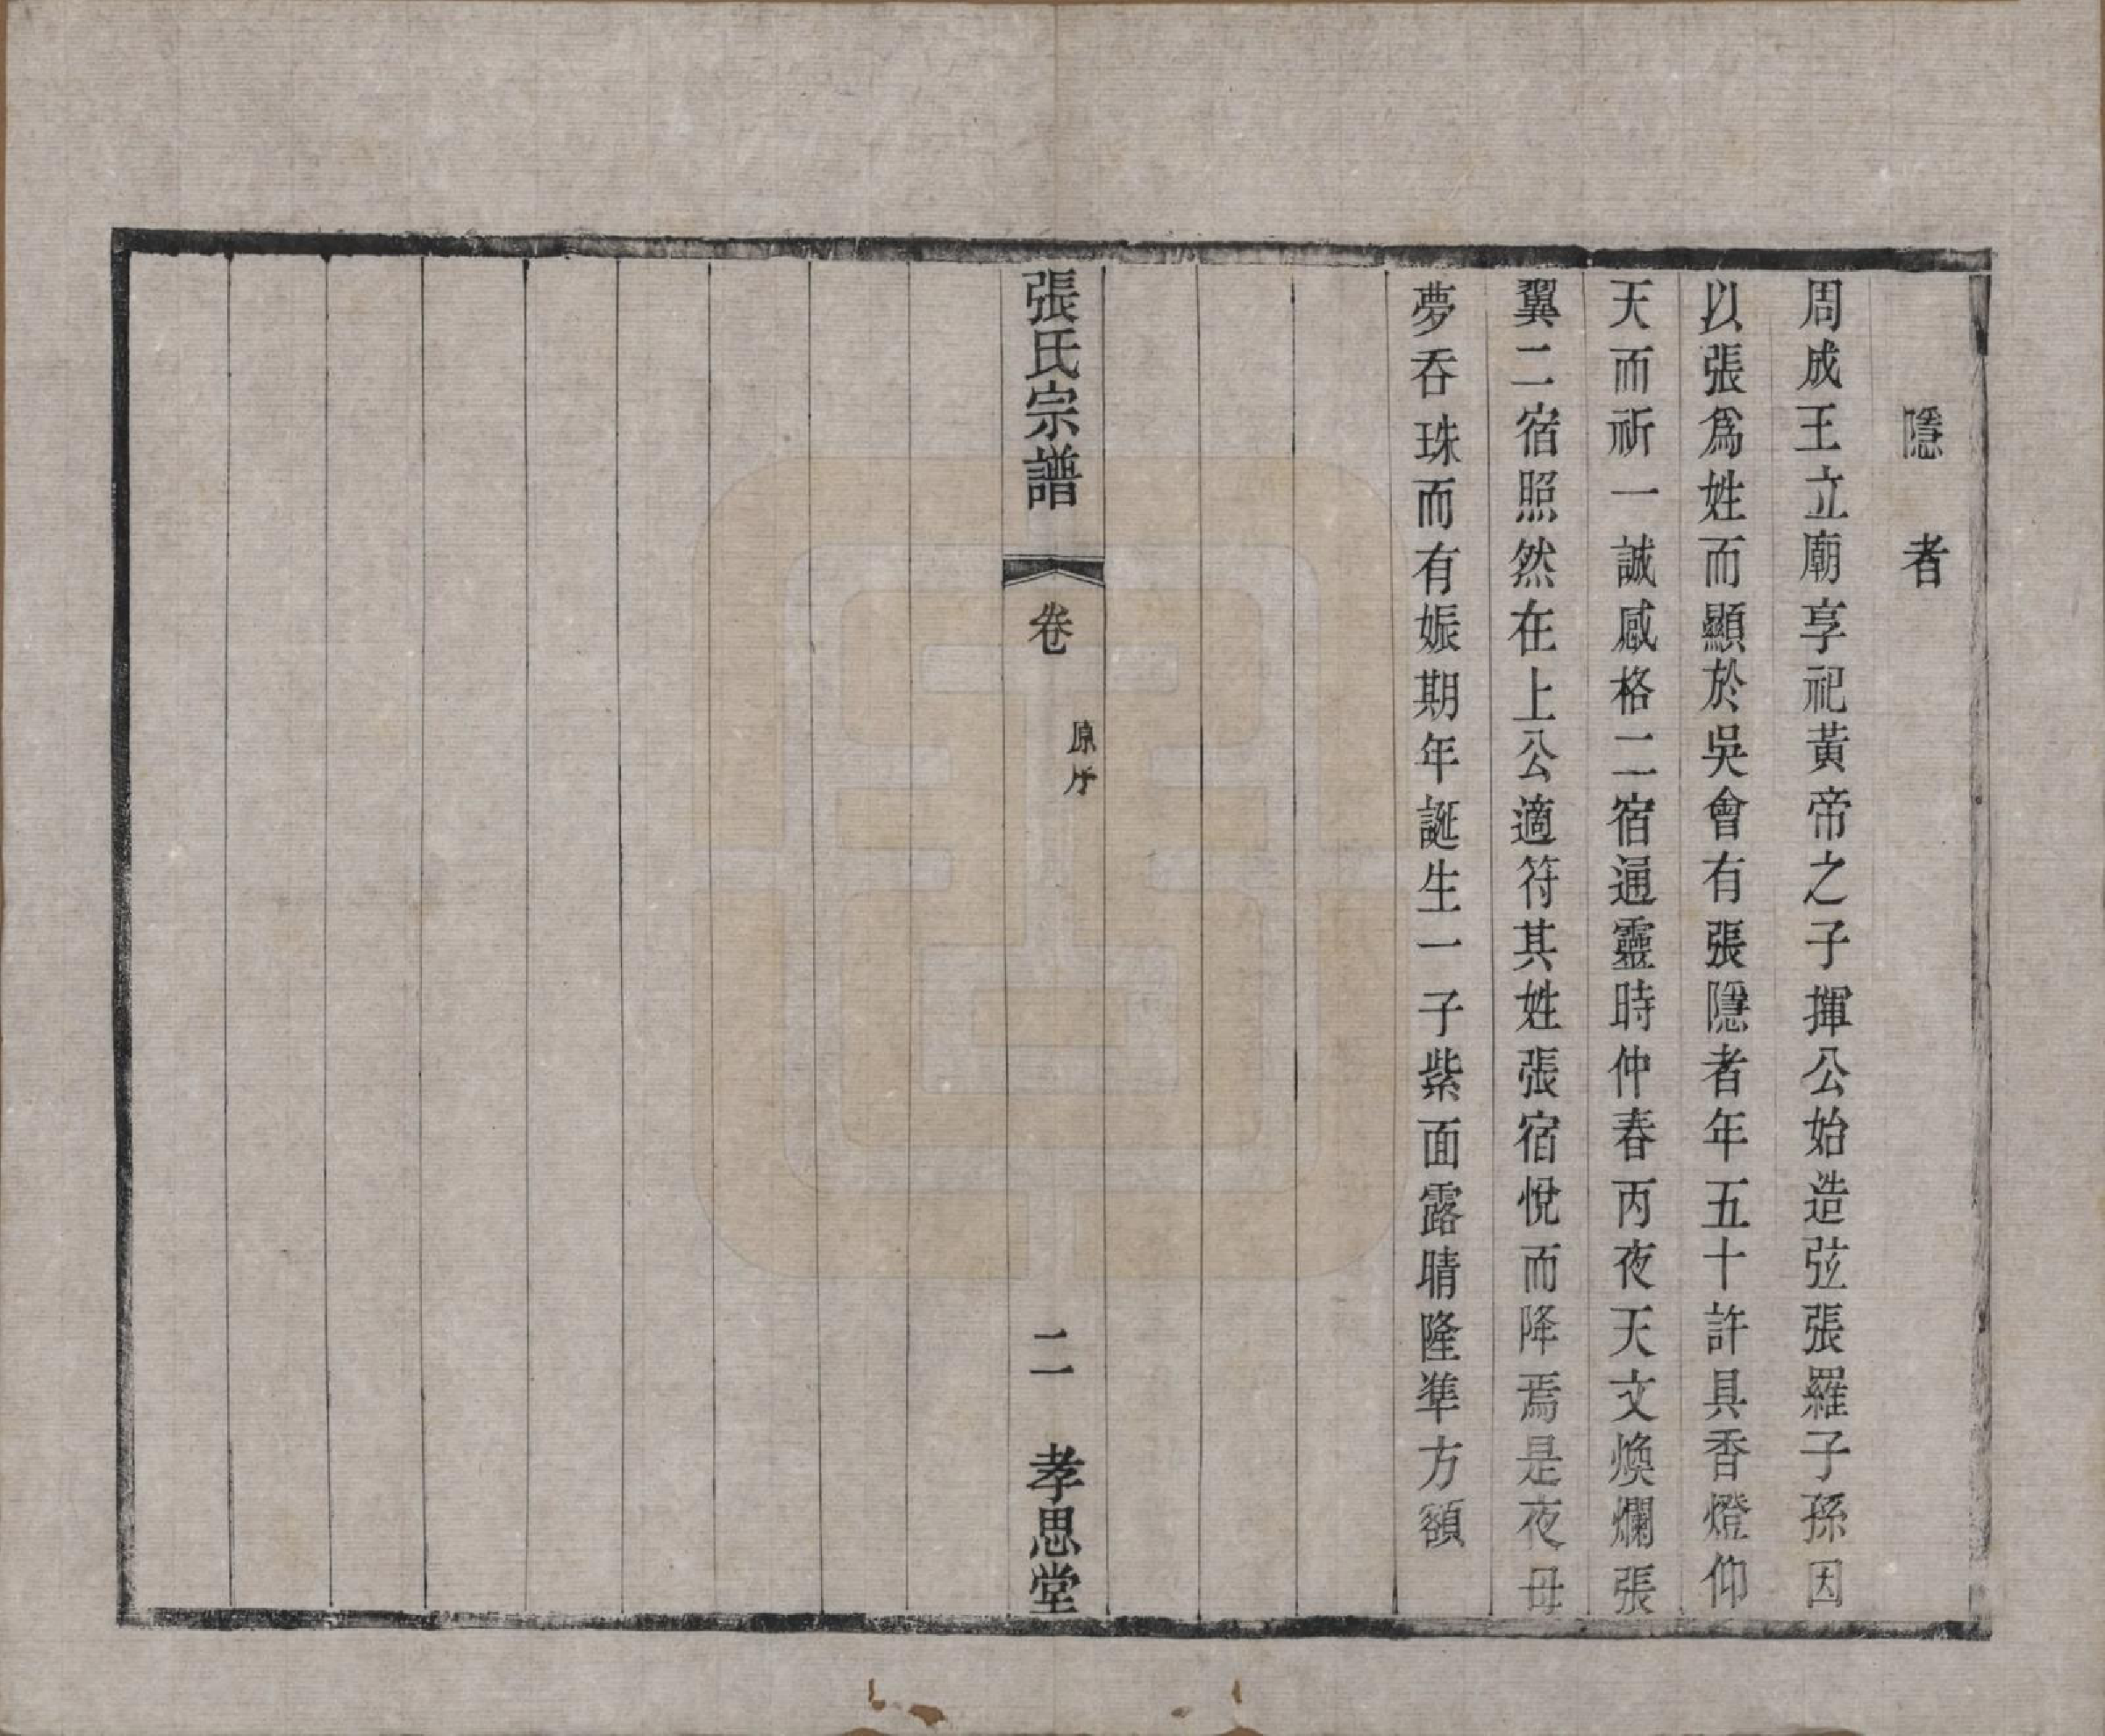 隱者
周成王立廟享祀黃帝之子揮公始造弦張羅子孫因
以張爲姓而顯於吳會有張隱者年五十許具香燈仰
天而祈一誠感格二宿通靈時仲春丙夜天文煥爛張
翼二宿照然在上公適符其姓張宿悅而降焉是夜母
夢吞珠而有娠期年誕生一子紫面露睛隆準方額
張氏宗譜
卷
原序
二
孝思堂